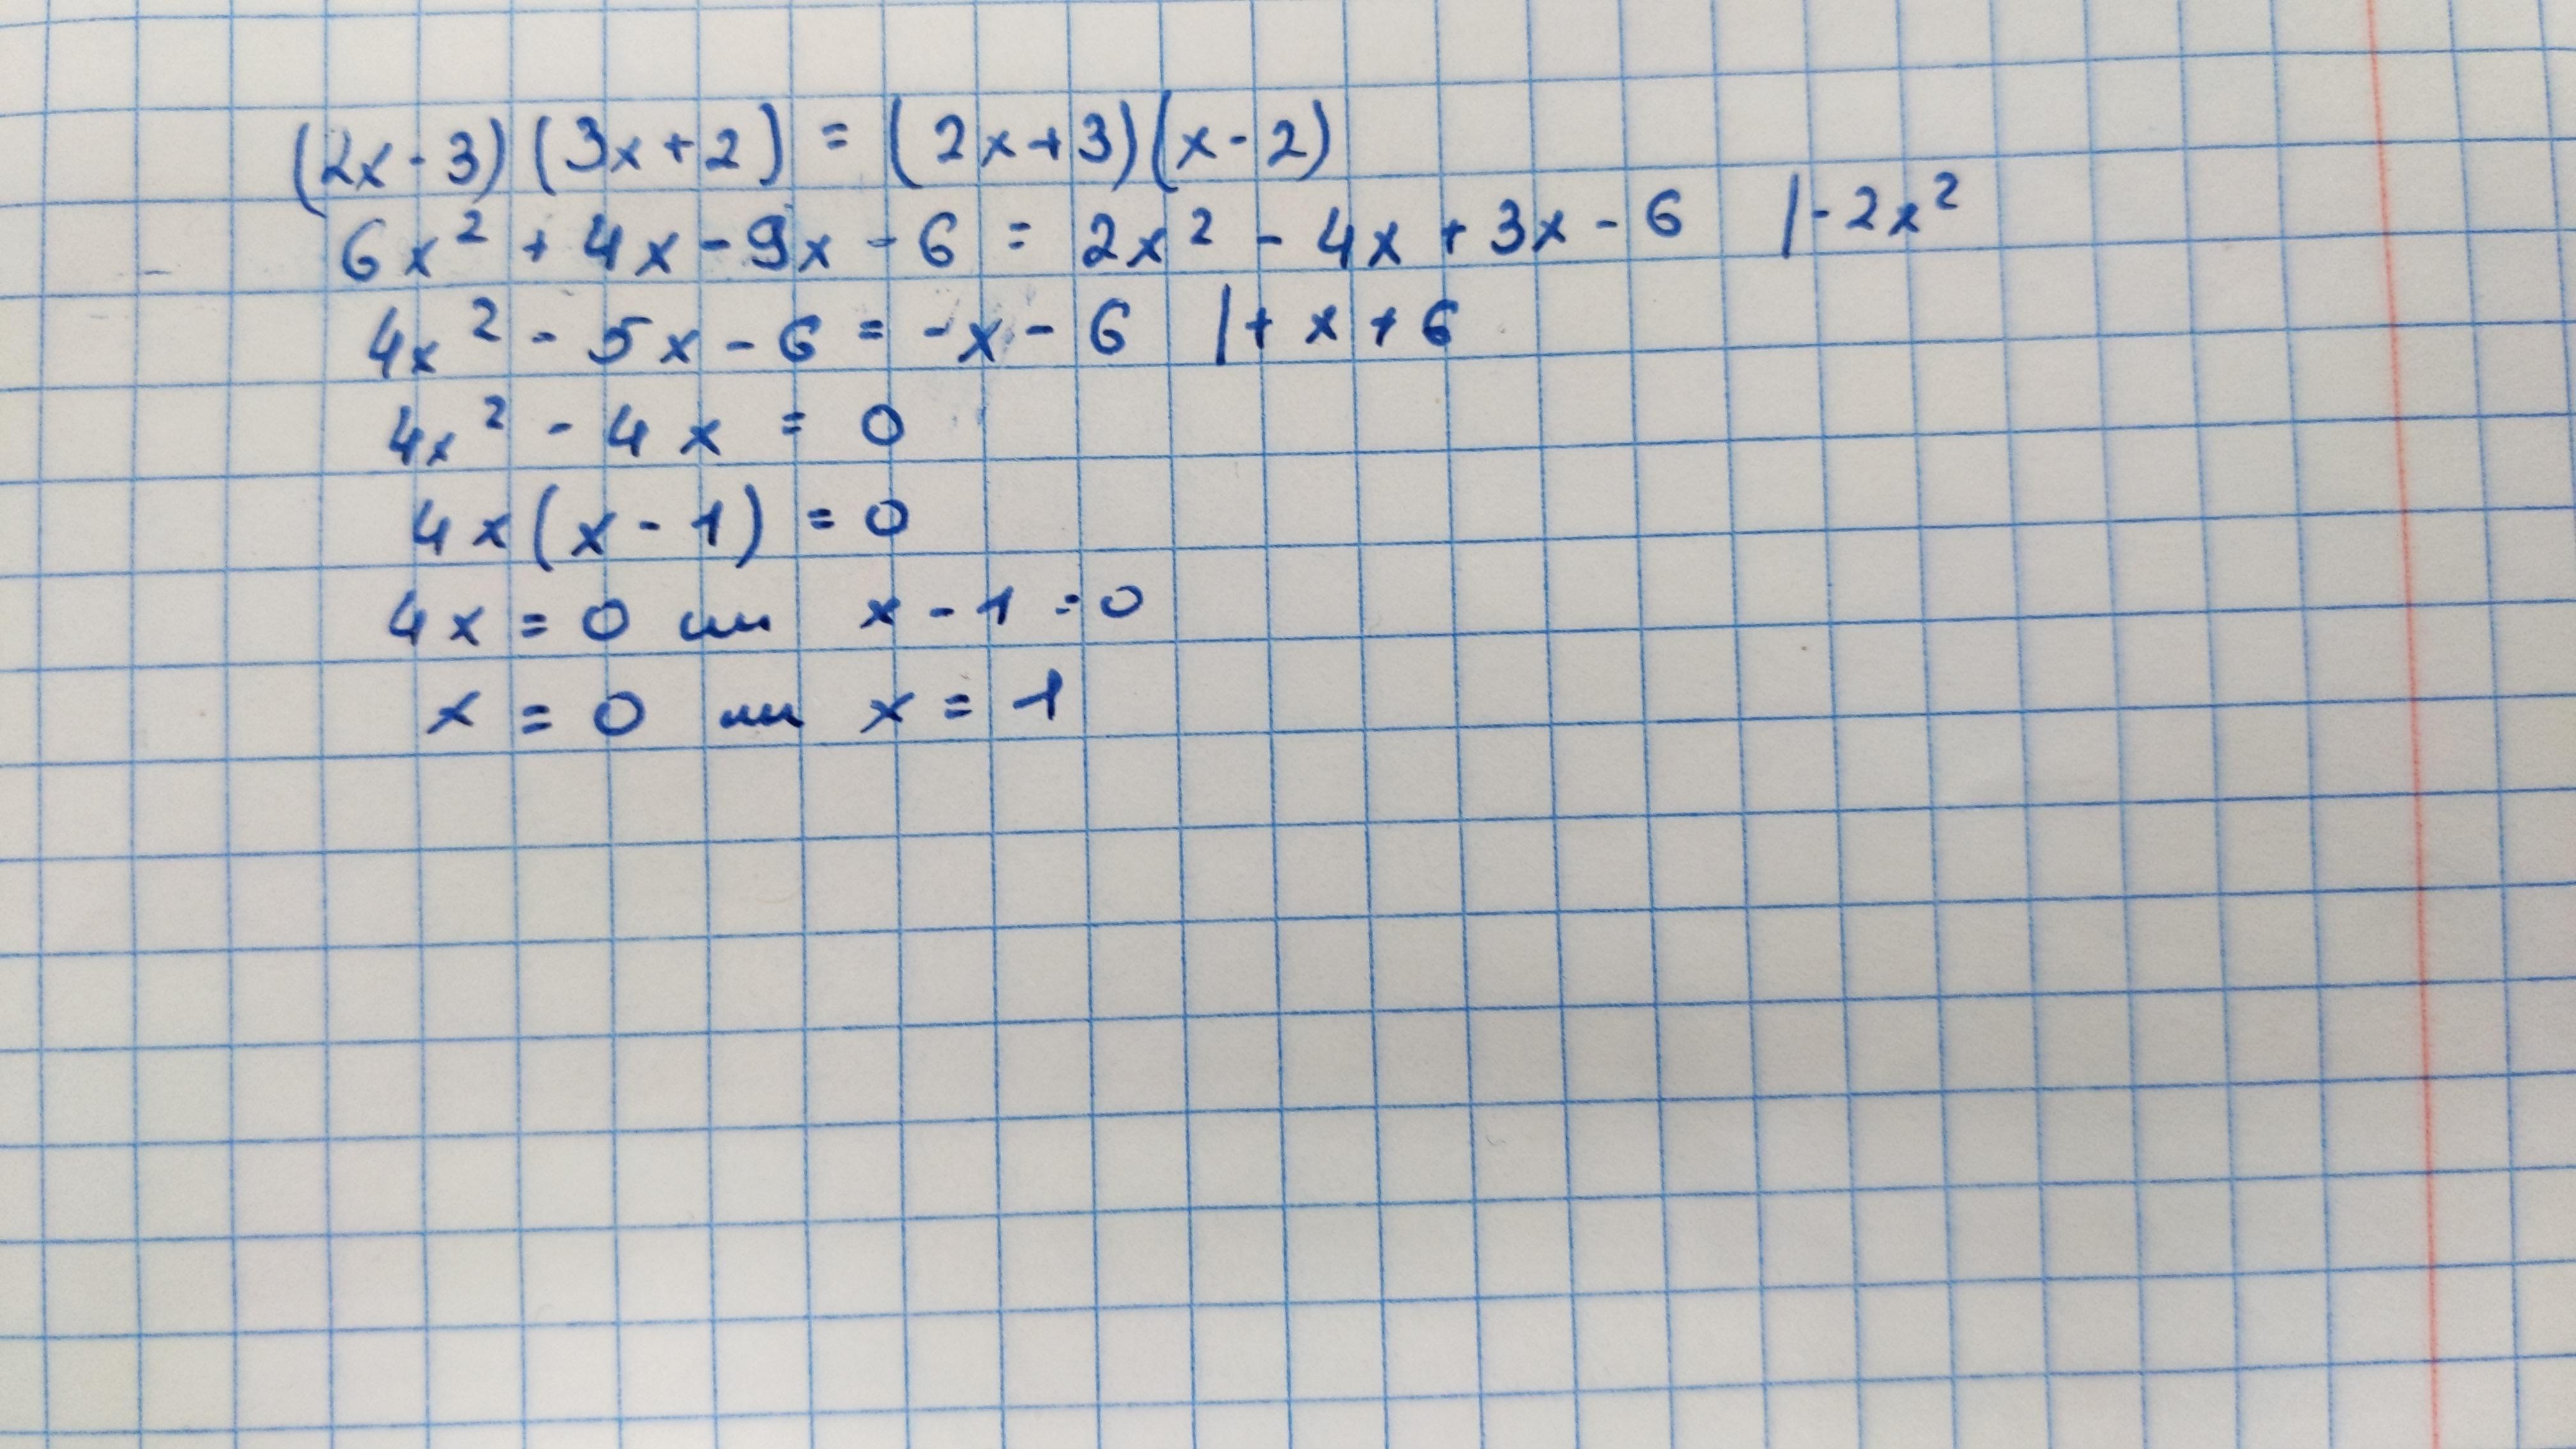 (2x-3)(3x+2) = (2x+3)(x-2)
6x² + 4x - 9x - 6 = 2x² - 4x + 3x - 6 |-2x²
4x² - 5x - 6 = -x - 6 |+ x + 6
4x² - 4x = 0
4x(x-1) = 0
4x = 0 или x - 1 = 0
x = 0 или x = 1